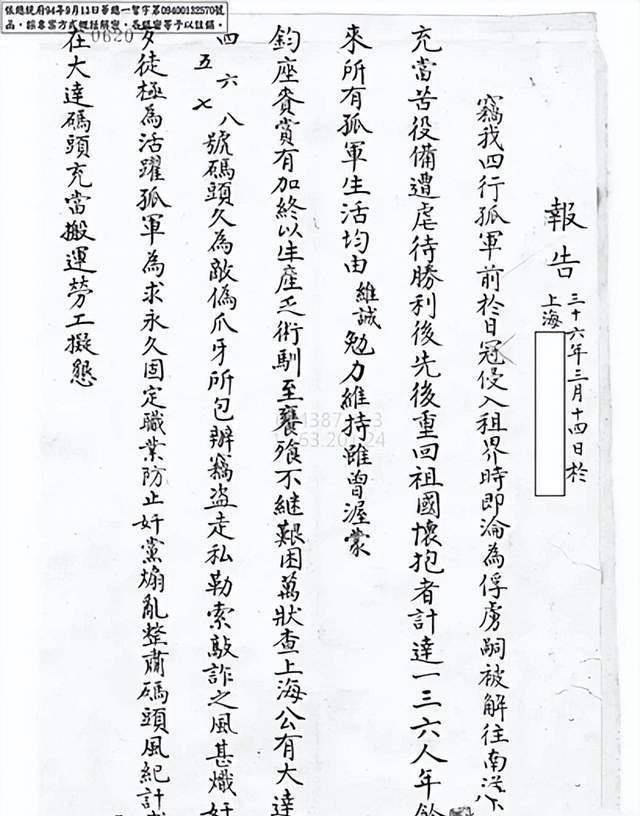 依總統府94年9月13日華總一智字第09400132570號
函，採專案方式概括解密，各級密等予以註銷。
0620
報告
三十六年三月十四日於
上海
竊我四行孤軍前於日冠侵入租界時即淪為俘虜嗣被解往南洋
充當苦役備遭虐待勝利後先後重回祖國懷抱者計達一三六人年餘
來所有孤軍生活均由維誠勉力維持雖曾渥蒙
鈞座賚賞有加終以生產乏術馴至饔飧不継艱困萬狀查上海公有大達
四五六七八號碼頭久為敵偽爪牙所包辦竊盜走私勒索敲詐之風甚熾奸
歹徒極為活躍孤軍為求永久固定職業防止奸黨煽亂整肅碼頭風紀計
在大達碼頭充當搬運勞工擬懇